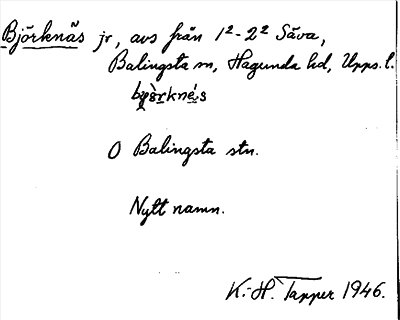 Björknäs jr, avs från 1² - 2² Säva,
Balingsta sn, Hagunda hd, Upps. l.
O Balingsta stn.
Nytt namn.
K.-H. Tapper 1946.